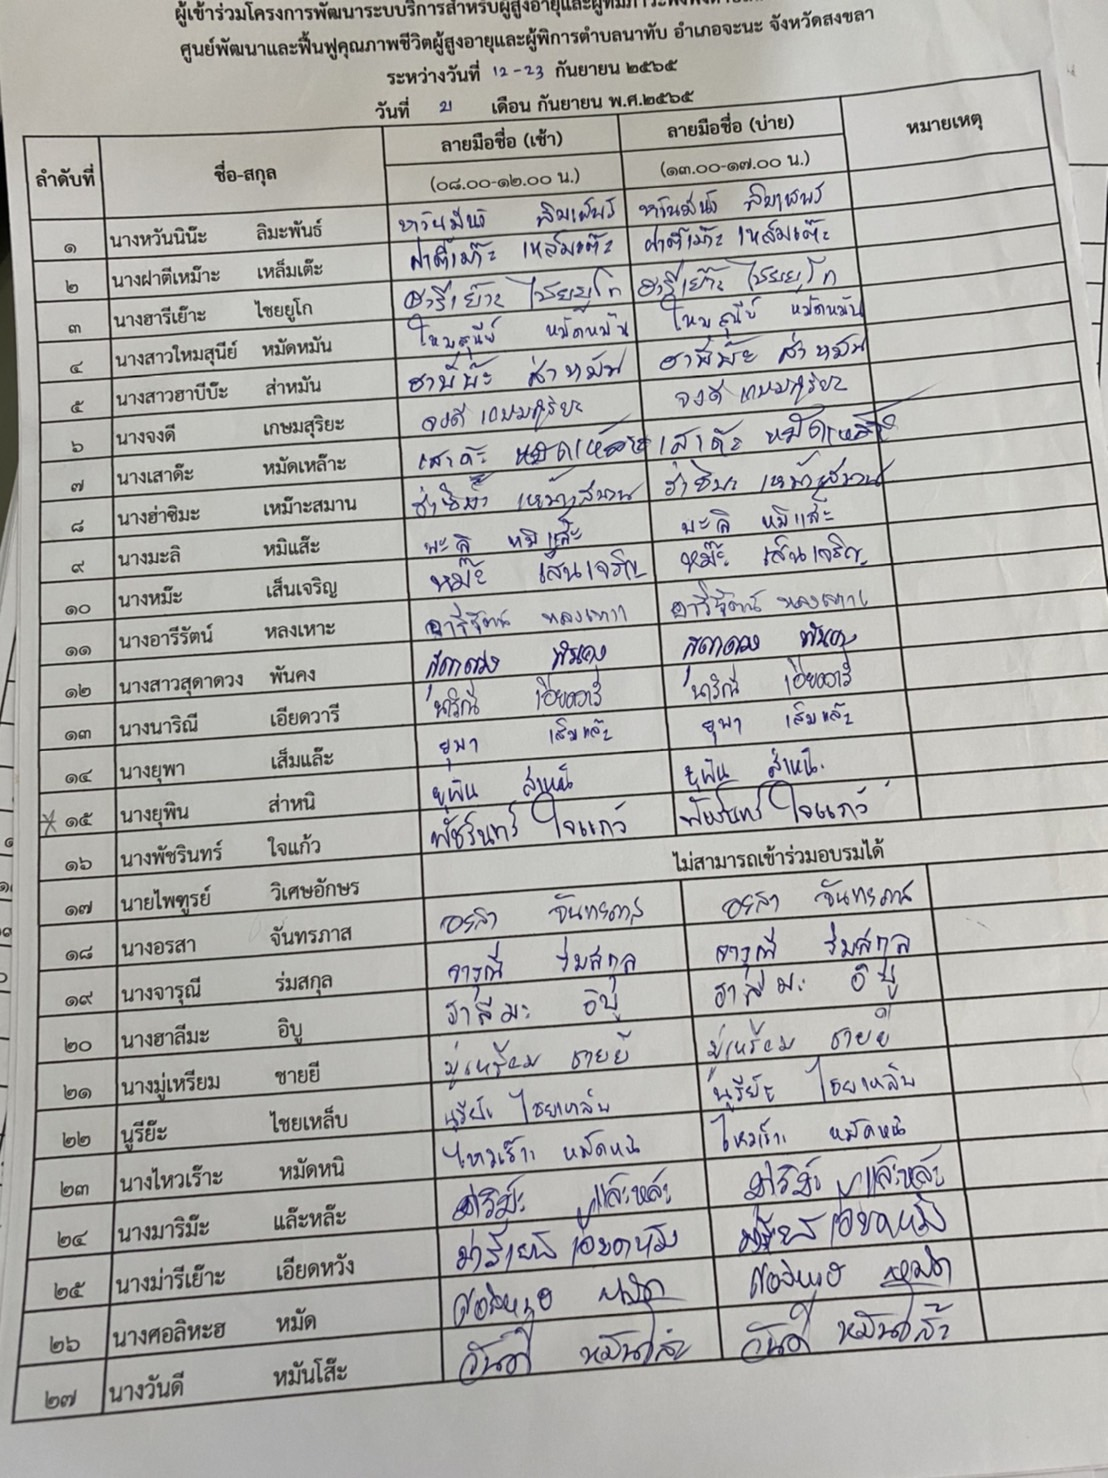 ผู้เข้าร่วมโครงการพัฒนาระบบบริการสำหรับผู้สูงอายุและผู้ที่มีภาวะพึ่งพิง
ศูนย์พัฒนาและฟื้นฟูคุณภาพชีวิตผู้สูงอายุและผู้พิการตำบลนาทับ อำเภอจะนะ จังหวัดสงขลา
ระหว่างวันที่ 12-23 กันยายน ๒๕๖๕
วันที่ 21 เดือน กันยายน พ.ศ.๒๕๖๕
ลำดับที่ ชื่อ-สกุล ลายมือชื่อ (เช้า) ลายมือชื่อ (บ่าย) หมายเหตุ
(๐๘.๐๐-๑๒.๐๐ น.) (๑๓.๐๐-๑๗.๐๐ น.)
๑ นางหวันนิน๊ะ ลิมะพันธ์
๒ นางฝาตีเหม๊าะ เหล็มเต๊ะ ฝาตีเม๊าะ เหล็มเต๊ะ ฝาตีเม๊าะ เหล็มเต๊ะ
๓ นางฮารีเย๊าะ ไชยยูโก ฮารีเย๊าะ ไชยยูโก ฮารีเย๊าะ ไชยยูโก
๔ นางสาวใหมสุนีย์ หมัดหมัน ใหมสุนีย์ หมัดหมัน ใหมสุนีย์ หมัดหมัน
๕ นางสาวฮาบีบ๊ะ ส่าหมัน ฮาบีบ๊ะ ส่าหมัน ฮาบีบ๊ะ ส่าหมัน
๖ นางจงดี เกษมสุริยะ จงดี เกษมสุริยะ จงดี เกษมสุริยะ
๗ นางเสาด๊ะ หมัดเหล๊าะ เสาด๊ะ หมัดเหล๊าะ เสาด๊ะ
๘ นางฮ่าซิมะ เหม๊าะสมาน
๙ นางมะลิ หมิแส๊ะ มะลิ หมิแส๊ะ มะลิ หมิแส๊ะ
๑๐ นางหมี๊ะ เส็นเจริญ หมี๊ะ เส็นเจริญ หมี๊ะ เส็นเจริญ
๑๑ นางอารีรัตน์ หลงเหาะ อารีรัตน์ อารีรัตน์
๑๒ นางสาวสุดาดวง พันคง สุดาดวง พันคง สุดาดวง พันคง
๑๓ นางนาริณี เอียดวารี นาริณี เอียดวารี นาริณี เอียดวารี
๑๔ นางยุพา เส็มแล๊ะ ยุพา เส็มแล๊ะ ยุพา เส็มแล๊ะ
๑๕ นางยุพิน ส่าหนิ ยุพิน ส่าหนิ ยุพิน ส่าหนิ
๑๖ นางพัชรินทร์ ใจแก้ว พัชรินทร์ ใจแก้ว พัชรินทร์ ใจแก้ว
๑๗ นายไพฑูรย์ วิเศษอักษร ไม่สามารถเข้าร่วมอบรมได้
๑๘ นางอรสา จันทรภาส อรสา จันทรภาส อรสา จันทรภาส
๑๙ นางจารุณี ร่มสกุล จารุณี ร่มสกุล จารุณี ร่มสกุล
๒๐ นางฮาลีมะ อิบู ฮาลีมะ อิบู ฮาลีมะ อิบู
๒๑ นางมู่เหรียม ชายยี มู่เหรียม ชายยี มู่เหรียม ชายยี
๒๒ นูรีย๊ะ ไชยเหล็บ นูรีย๊ะ ไชยเหล็บ นูรีย๊ะ ไชยเหล็บ
๒๓ นางไหวเร๊าะ หมัดหนิ ไหวเร๊าะ หมัดหนิ ไหวเร๊าะ หมัดหนิ
๒๔ นางมาริม๊ะ แล๊ะหล๊ะ มาริม๊ะ แล๊ะหล๊ะ มาริม๊ะ แล๊ะหล๊ะ
๒๕ นางม่ารีเย๊าะ เอียดหวัง เอียดหวัง เอียดหวัง
๒๖ นางศอลิหะฮ หมัด หมัด หมัด
๒๗ นางวันดี หมันโส๊ะ วันดี หมันโส๊ะ วันดี หมันโส๊ะ